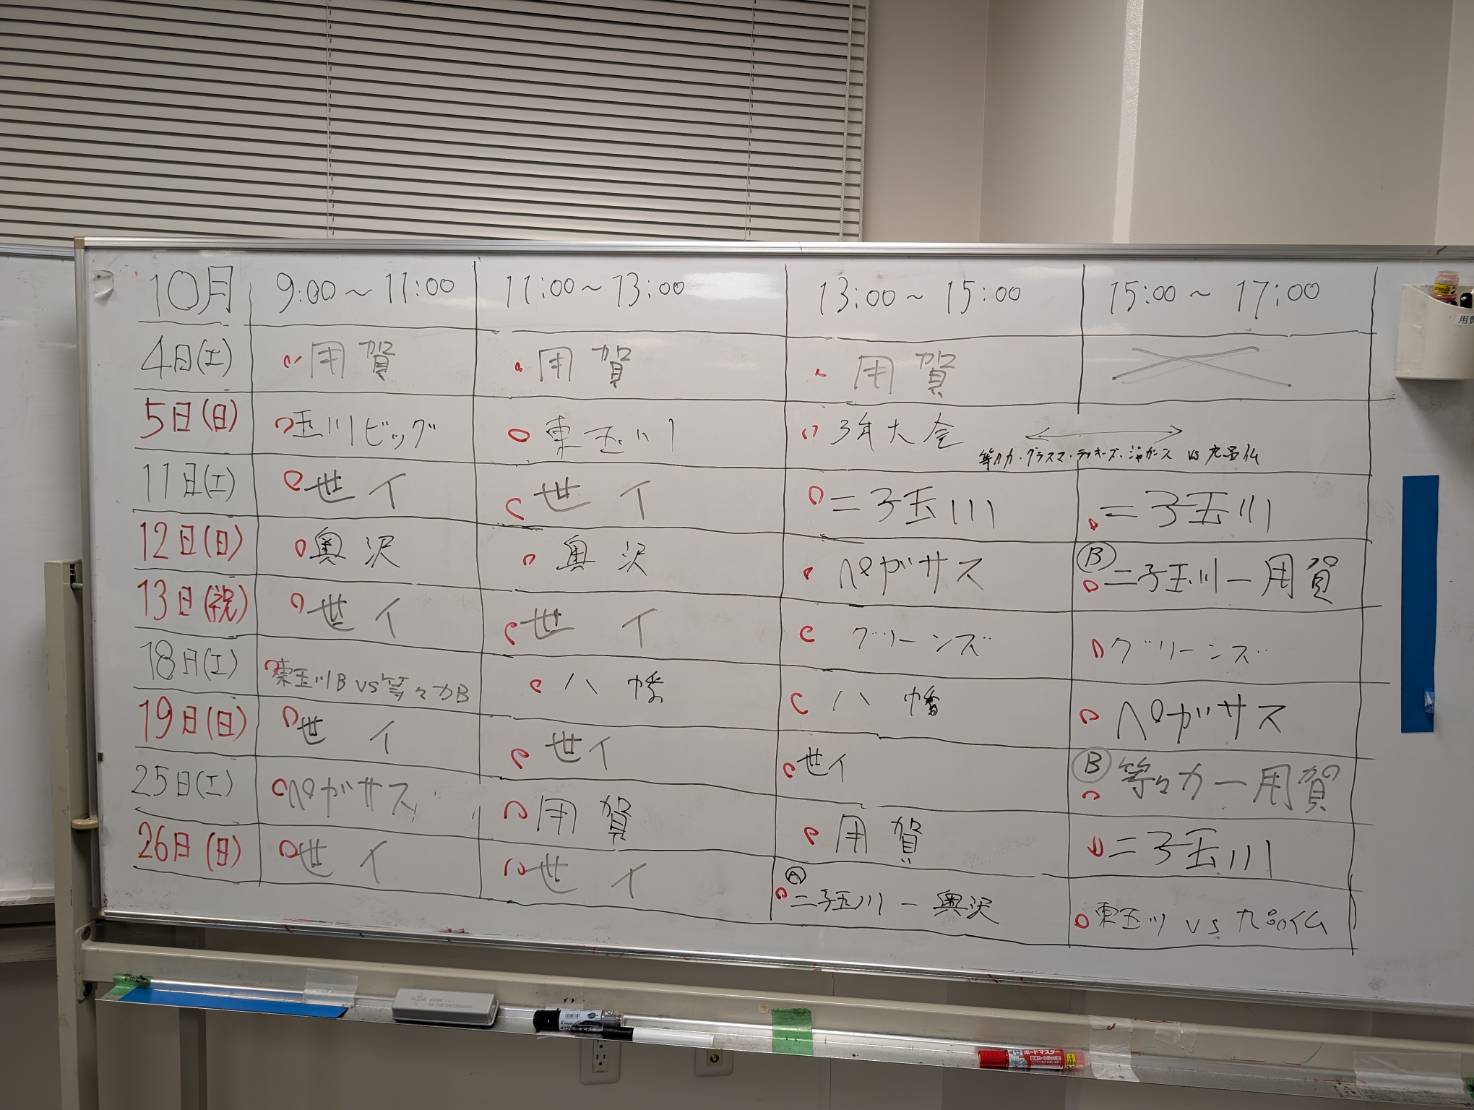 10月 9:00～11:00 11:00～13:00 13:00～15:00 15:00～17:00
4日(土) 用賀 用賀 用賀
5日(日) 玉川ビッグ 東玉川 3年大会
等々力・プラスマ・ ・ジャガース vs 九品仏
11日(土) 世イ 世イ 二子玉川 二子玉川
12日(日) 奥沢 奥沢 ペガサス Ⓑ二子玉川ー用賀
13日(祝) 世イ 世イ グリーンズ グリーンズ
18日(土) 東玉川B vs 等々力B 八幡 八幡 ペガサス
19日(日) 世イ 世イ 世イ Ⓑ等々力ー用賀
25日(土) ペガサス 用賀 用賀 二子玉川
26日(日) 世イ 世イ Ⓐ二子玉川ー奥沢 東玉川 vs 九品仏
ボードマスター